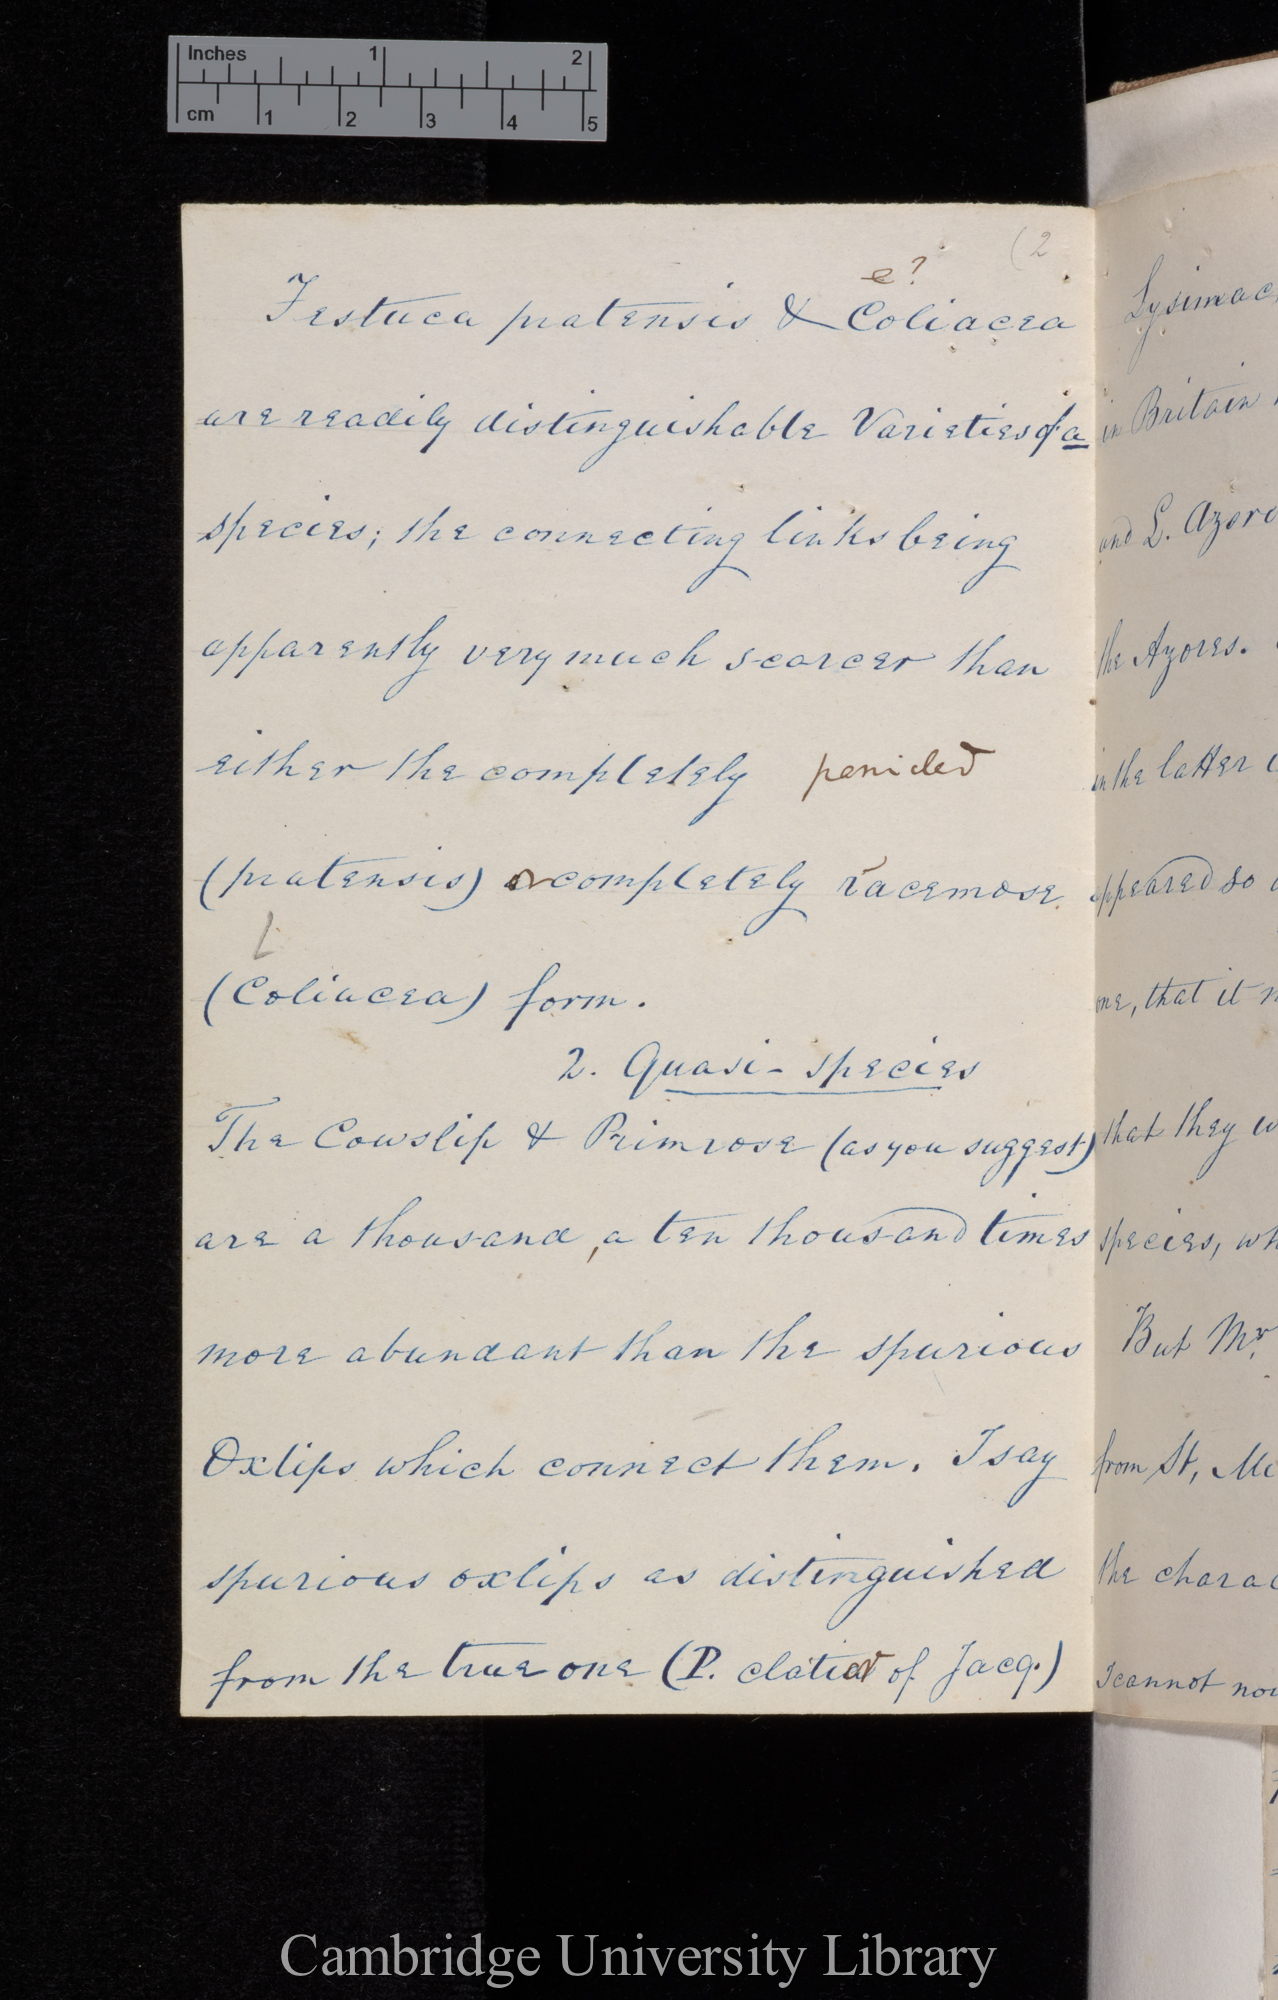 Inches 1 2
cm 1 2 3 4 5
(2
e?
Festuca pratensis & Coliacea
are readily distinguishable Varieties of a
species; the connecting links being
apparently very much scarcer than
either the completely panicled
(pratensis) or completely racemose
(Coliacea) form.
2. Quasi-species
The Cowslip & Primrose (as you suggest)
are a thousand, a ten thousand times
more abundant than the spurious
Oxlips which connect them. I say
spurious oxlips as distinguished
from the true one (P. elatior of Jacq.)
Lysimac
in Britain
and L. Azor
the Azores.
in the latter
appeared so
one, that it
that they w
species, wh
But Mr.
from St, Mi
the charac
I cannot no
Cambridge University Library